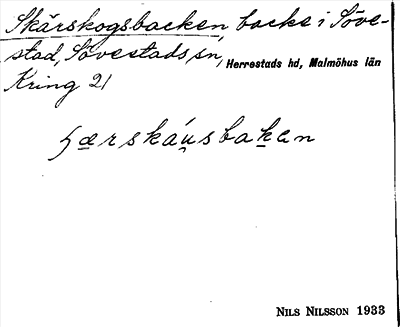 Skärskogsbacken, backe i Söve-
stad, Sövestads sn, Herrestads hd, Malmöhus län
Kring 21
ʃærskáu̯sbakan
NILS NILSSON 1933